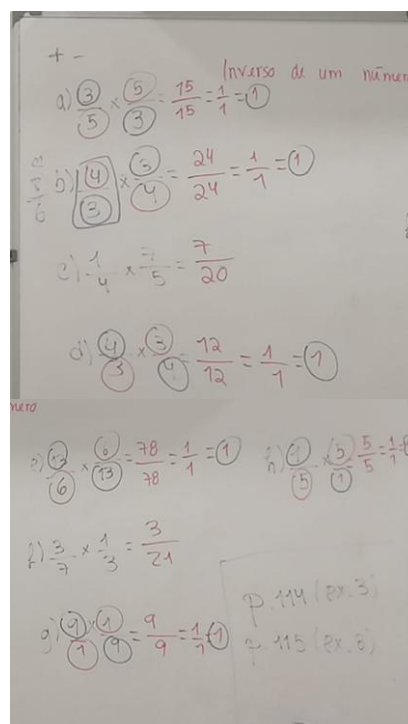 + -
Inverso de um númer
a) 3/5 × 5/3 = 15/15 = 1/1 = 1
b) 4/3 × 3/4 = 24/24 = 1/1 = 1
c) 1/4 × 7/5 = 7/20
d) 4/3 × 3/4 = 12/12 = 1/1 = 1
mero
e) 13/6 × 6/13 = 78/78 = 1/1 = 1
h) 1/5 × 5/1 = 5/5 = 1/1 =
f) 3/7 × 1/3 = 3/21
g) 9/1 × 1/9 = 9/9 = 1/1 = 1
p. 114 (ex. 3)
p. 115 (ex. 3)